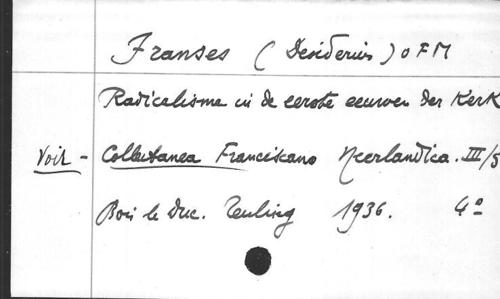 Franses (Desiderius) OFM
Radicalisme in de eerste eeuwen der Kerk
Voir - Collectanea Franciscana Neerlandica. III/5
Bois le Duc. Teuling 1936. 4º